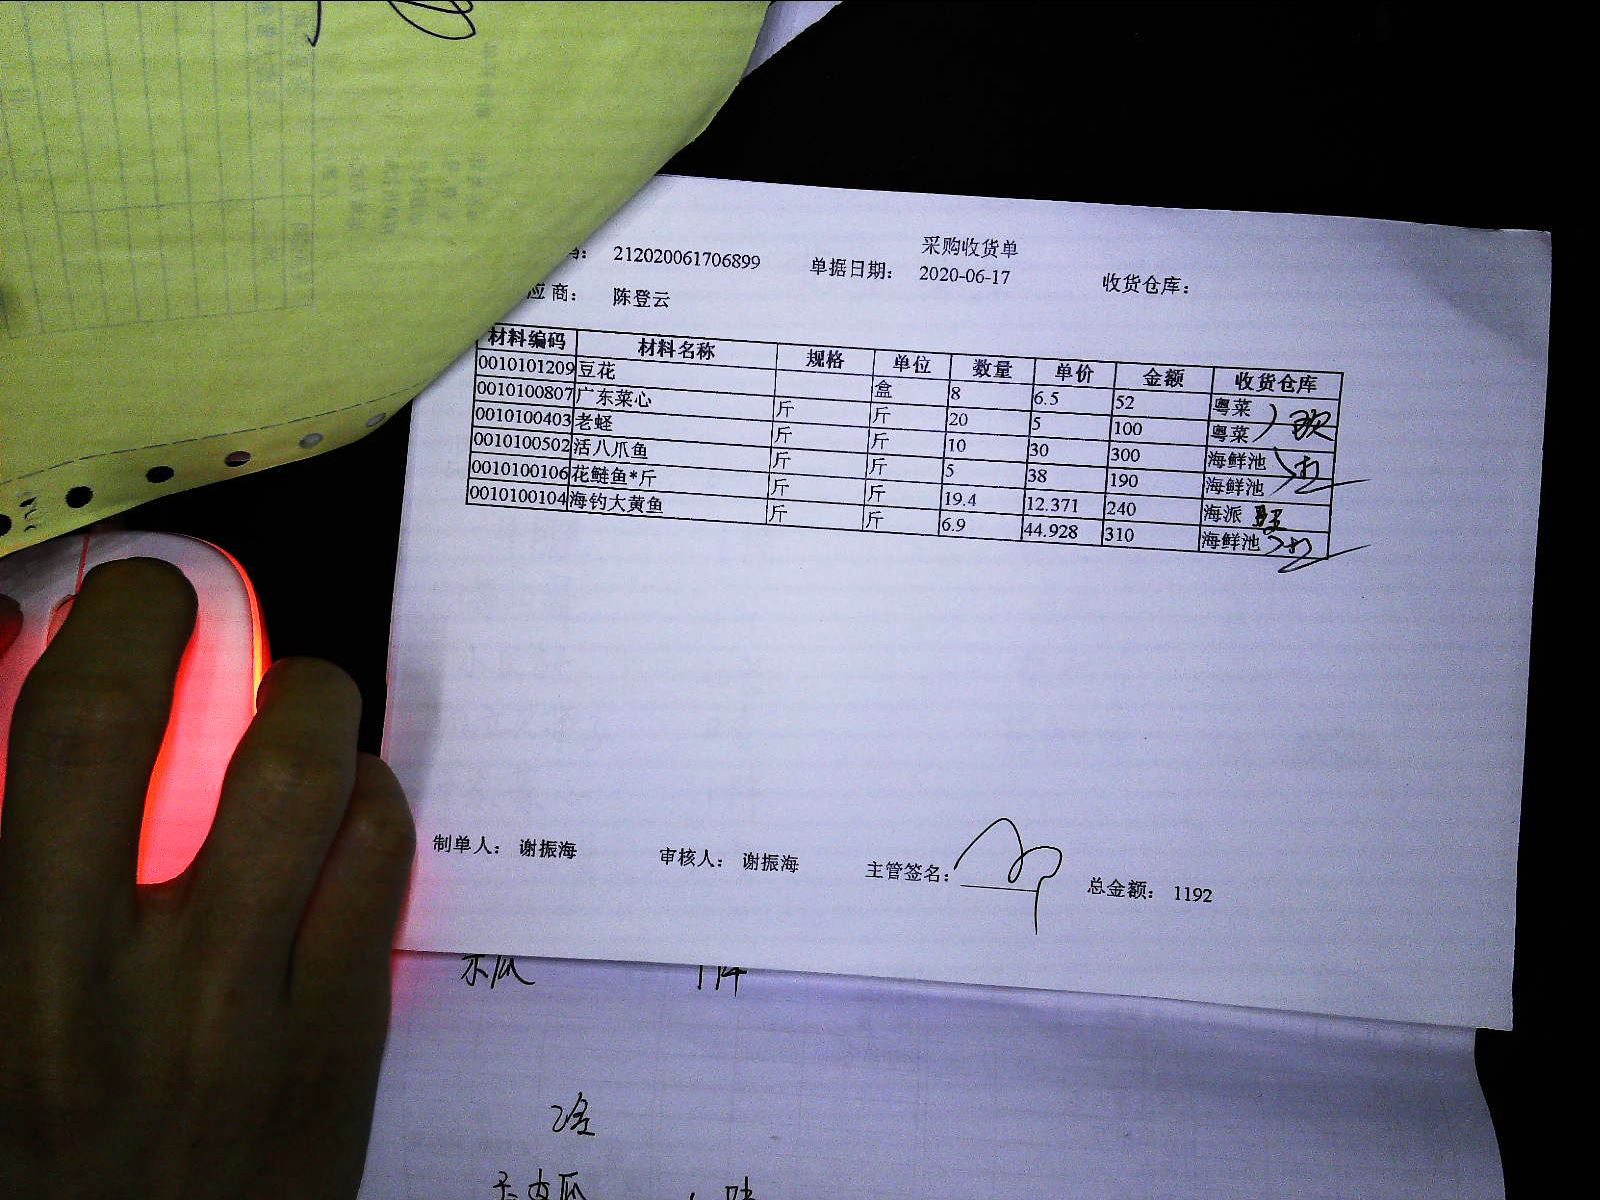 采购收货单
码： 212020061706899 单据日期： 2020-06-17 收货仓库：
应商： 陈登云
材料编码 材料名称 规格 单位 数量 单价 金额 收货仓库
0010101209 豆花 盒 8 6.5 52 粤菜
0010100807 广东菜心 斤 斤 20 5 100 粤菜
0010100403 老蛏 斤 斤 10 30 300 海鲜池
0010100502 活八爪鱼 斤 斤 5 38 190 海鲜池
0010100106 花鲢鱼*斤 斤 斤 19.4 12.371 240 海派
0010100104 海钓大黄鱼 斤 斤 6.9 44.928 310 海鲜池
制单人： 谢振海 审核人： 谢振海 主管签名： 总金额： 1192